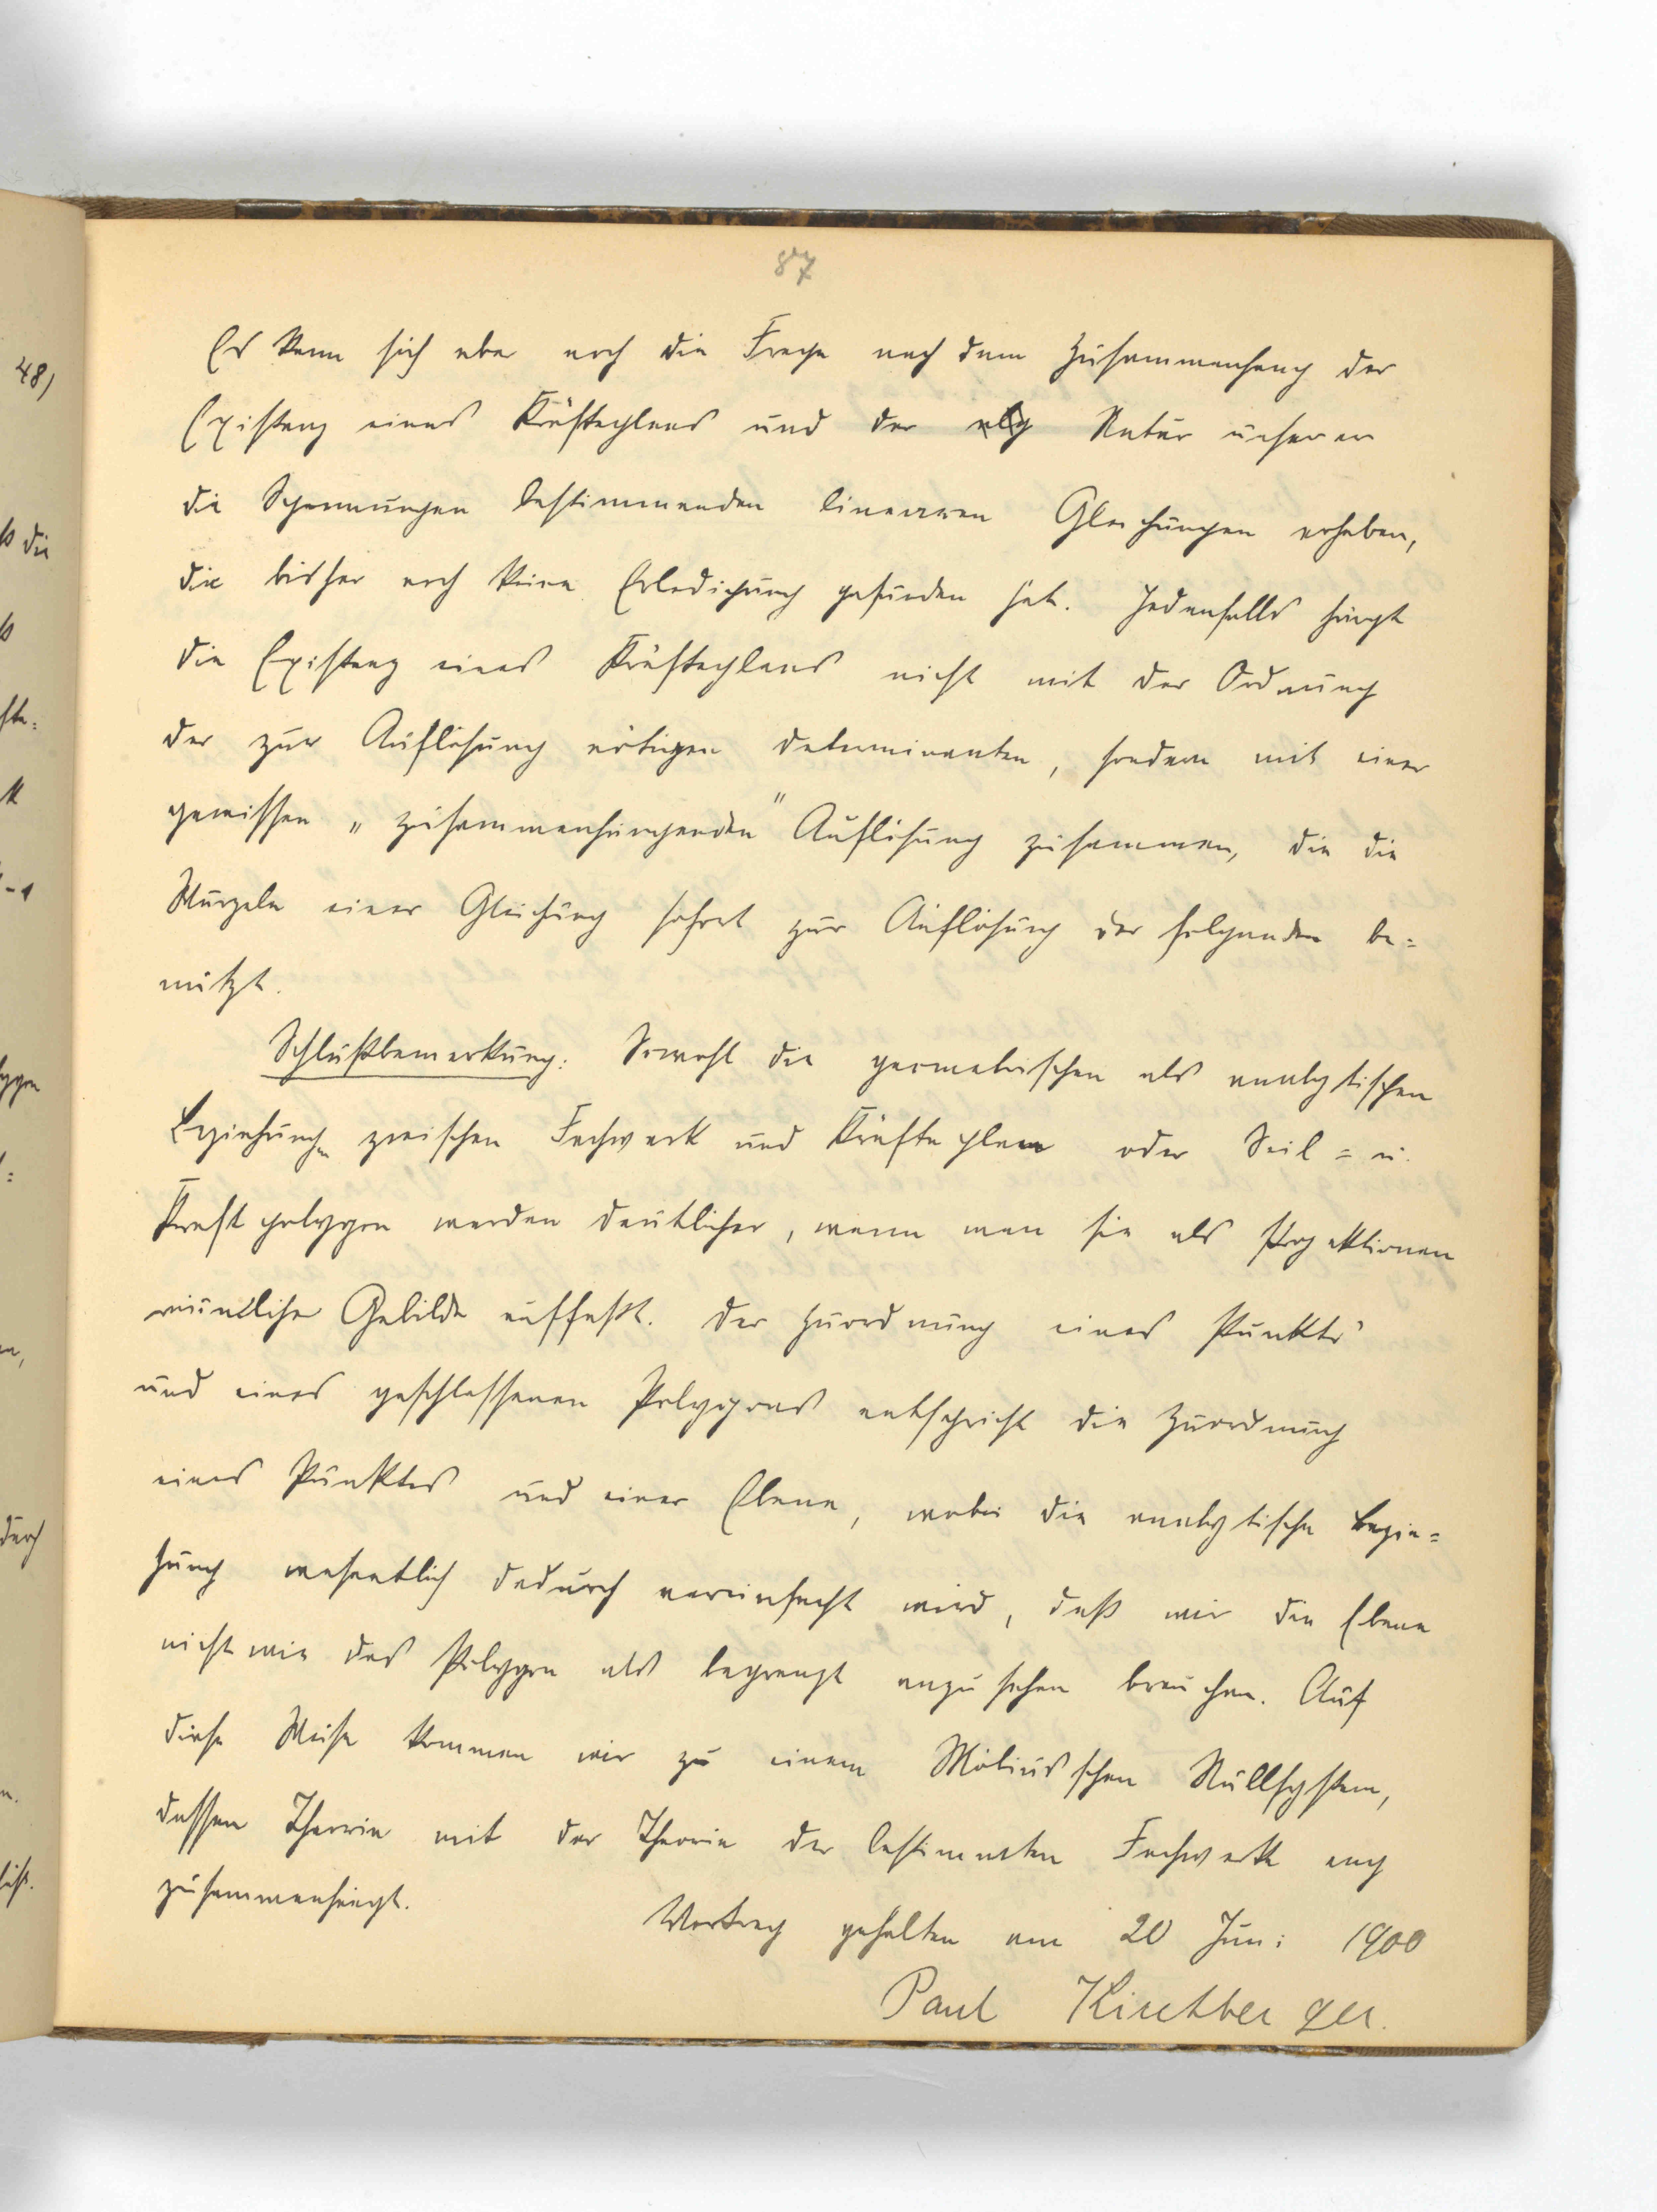 87
Es kann sich aber noch die Frage nach dem Zusammenhang der
Existenz eines Kräfteplans und der alg Natur unserer
die Spannungen bestimmenden linearen Gleichungen erheben,
die bisher noch keine Erledigung gefunden hat. Jedenfalls hängt
die Existenz eines Kräfteplans nicht mit der Ordnung
der zur Auflösung nötigen Determinanten, sondern mit einer
gewissen „zusammenhängenden" Auflösung zusammen, die die
Wurzeln einer Gleichung sofort zur Auflösung der folgenden be=
nützt.
Schlußbemerkung: Sowohl die geometrischen als analytischen
Beziehungen zwischen Fachwerk und Kräfteplan oder Seil= u.
Kraftpolygon werden deutlicher, wenn man sie als Projektionen
räumlicher Gebilde auffaßt. Der Zuordnung eines Punktes
und eines geschlossenen Polygons entspricht die Zuordnung
eines Punktes und einer Ebene, wobei die analytische Bezie=
hung wesentlich dadurch vereinfacht wird, daß wir die Ebene
nicht wie das Polygon als begrenzt anzusehen brauchen. Auf
diese Weise kommen wir zu einem Möbiusschen Nullsystem,
dessen Theorie mit der Theorie der bestimmten Fachwerke eng
zusammenhängt.
Vortrag gehalten am 20 Juni 1900
Paul Kirchberger.
48)
ß die
durch